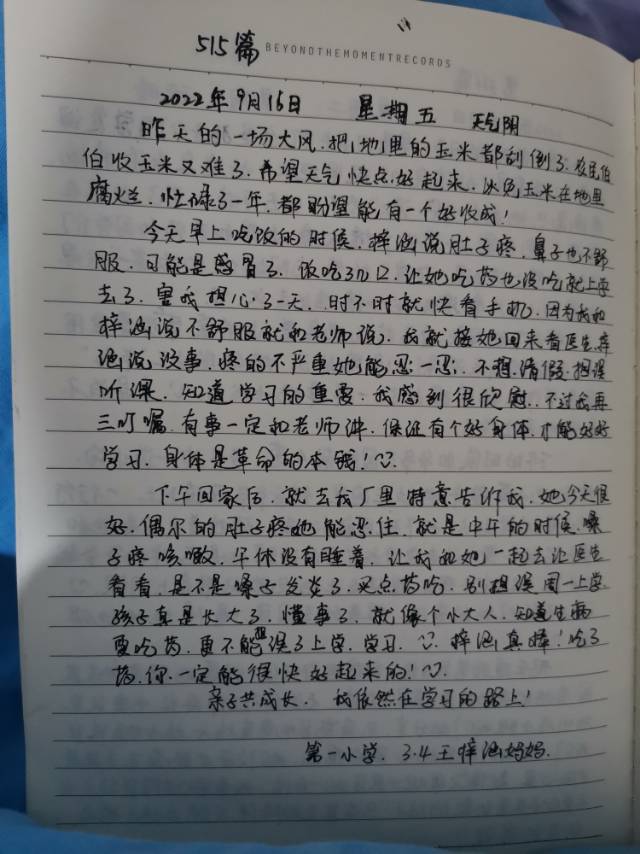 515篇 BEYONDTHEMOMENTRECORDS
2022年9月16日 星期五 天气阴
昨天的一场大风.把地里的玉米都刮倒了.农民伯
伯收玉米又难了.希望天气快点好起来.玉米在地里
腐烂.忙碌了一年.都盼望能有一个好收成!
今天早上吃饭的时候.梓涵说肚子疼.鼻子也不舒
服.可能是感冒了.饭吃了几口.让她吃药也没吃就上学
去了.害我担心了一天.时不时就快看手机.因为我和
梓涵说不舒服就和老师说.我就接她回来看医生.梓
涵说没事.疼的不严重她能忍一忍.不想请假.想误
听课.知道学习的重要.我感到很欣慰..不过我再
三叮嘱.有事一定和老师讲.保证有个好身体.才能好好
学习.身体是革命的本钱!
下午回家后.就去我厂里特意告诉我.她今天很
好.偶尔的肚子疼她能忍住.就是中午的时候.嗓
子疼咳嗽.午休没有睡着.让我和她一起去让医生
看看.是不是嗓子发炎了.买点药吃.别耽误周一上学.
孩子真是长大了.懂事了.就像个小大人.知道生病
要吃药.更不能耽误了上学.学习.梓涵真棒!吃了
药.你一定能很快好起来的!
亲子共成长.我依然在学习的路上!
第一小学.3.4王梓涵妈妈.